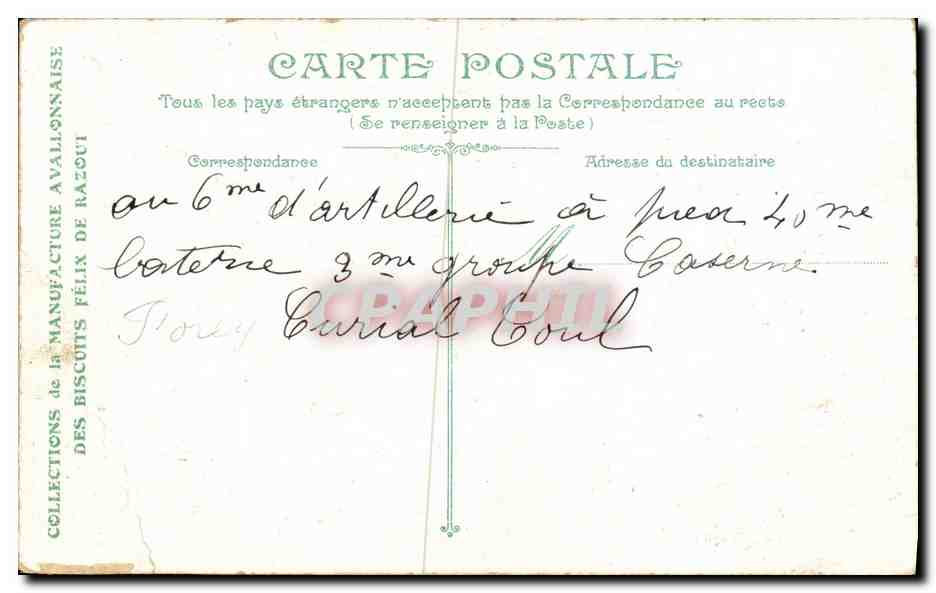 CARTE POSTALE
Tous les pays étrangers n'acceptent pas la Correspondance au recto
(Se renseigner à la Poste)
Correspondance
Adresse du destinataire
au 6me d'artillerie à pied 40me
baterie 3me groupe Caserne
Curial Toul
CPAPHIL
COLLECTIONS de la MANUFACTURE AVALLONNAISE
DES BISCUITS FÉLIX DE RAZOUT